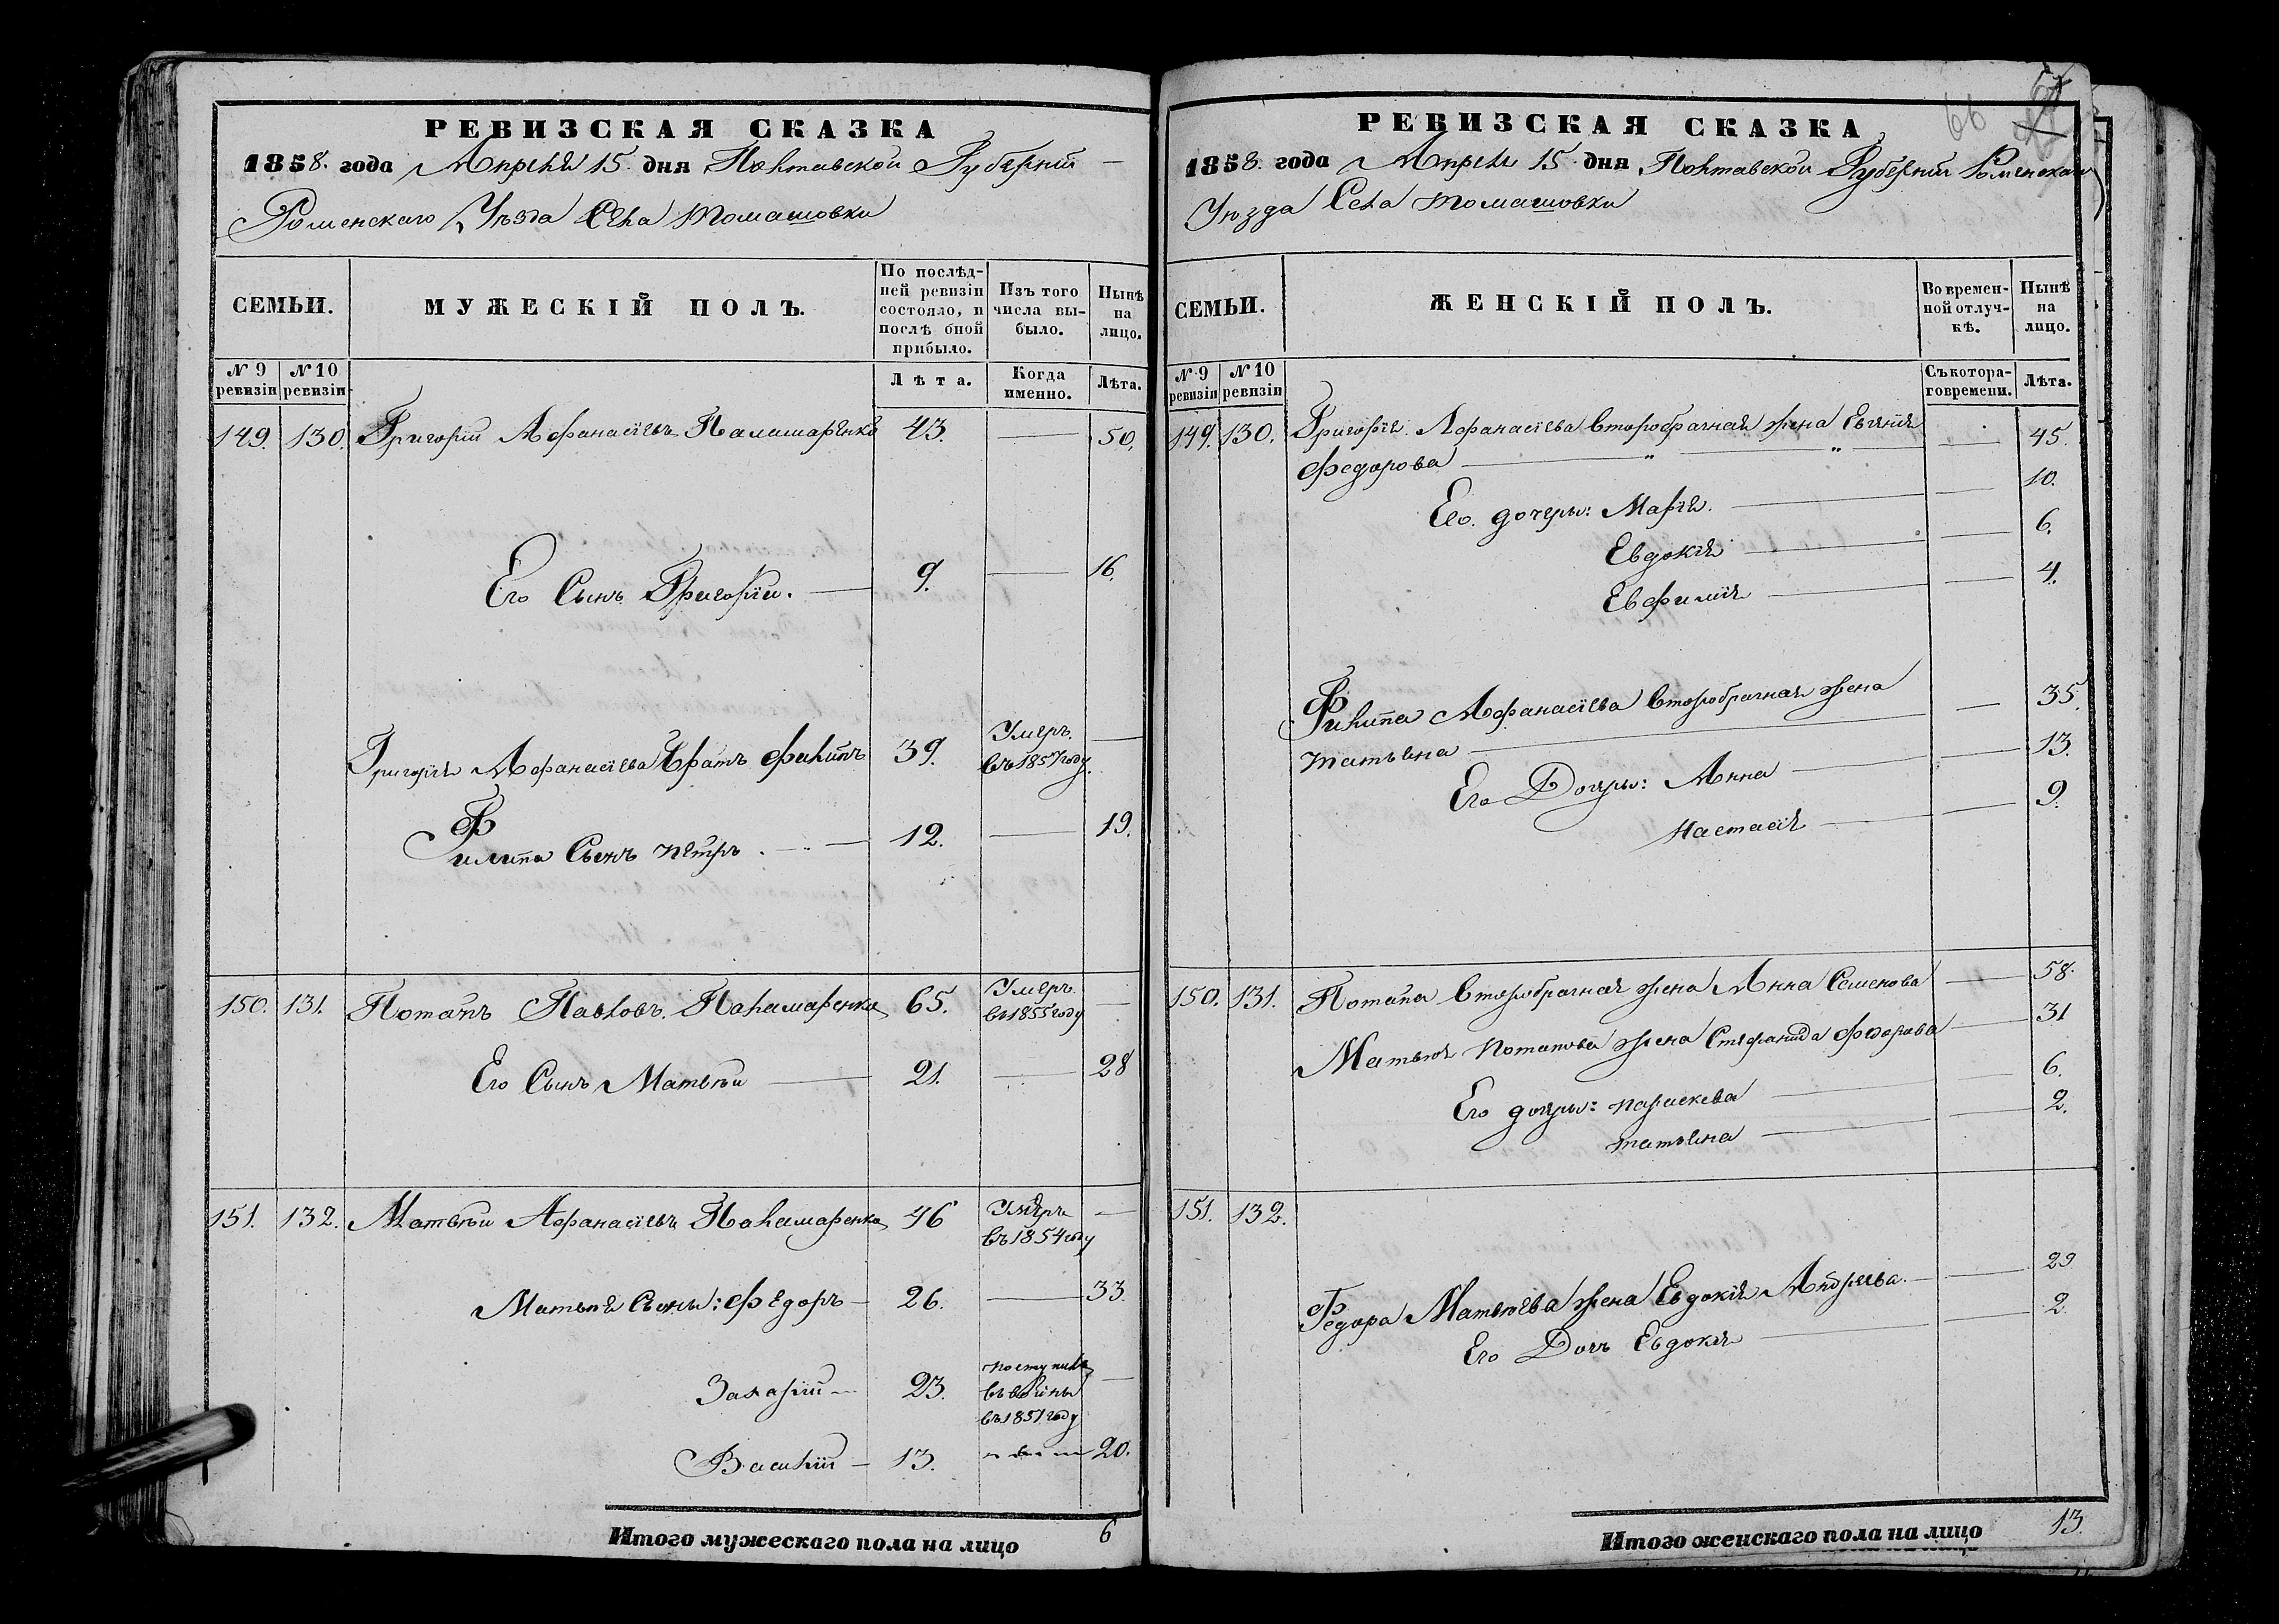 РЕВИЗСКАЯ СКАЗКА
1858. года Апреля 15. дня Полтавской Губерніи
Роменскаго Уѣзда Села Томашовки
СЕМЬИ.
МУЖЕСКІЙ ПОЛЪ.
По послѣд-
ней ревизіи
состояло, и
послѣ оной
прибыло.
Изъ того
числа вы-
было.
Нынѣ
на
лицо.
№ 9 ревизіи
№ 10 ревизіи
Лѣта.
Когда именно.
Лѣта.
149. 130. Григорій Афанасіевъ Паламаренко 43. — 50.
Его Сынъ Григорій. — 9. — 16.
Григорія Афанасіева братъ Филипъ 39. Умеръ въ 1857 году. —
Филипа Сынъ Петръ — 12. — 19.
150. 131. Потапъ Павловъ Паламаренко 65. Умеръ въ 1855 году —
Его Сынъ Матвѣй — 21. — 28
151. 132. Матвѣй Афанасіевъ Паламаренко 46 Умеръ въ 1854 году —
Матвѣя Сыны: Федоръ — 26. — 33.
Захарій — 23. поступилъ въ воины въ 1851 году —
Василій — 13. 20.
Итого мужескаго пола на лицо 6
66
РЕВИЗСКАЯ СКАЗКА
1858. года Апреля 15 дня Полтавской Губерніи Роменскаго
Уѣзда Села Томашовки
СЕМЬИ.
ЖЕНСКІЙ ПОЛЪ.
Во времен-
ной отлуч-
кѣ.
Нынѣ
на
лицо.
№ 9 ревизіи
№ 10 ревизіи
Съ котора-
го времени.
Лѣта.
149. 130. Григорія Афанасіева второбрачная жена Евгенія — 45.
Федорова
Его дочеры: Марія. — 10.
Евдокія — 6.
Евфимія — 4.
Филипа Афанасіева второбрачная жена — 35.
Татьяна
Его Дочеры: Анна — 13.
Настасія — 9.
150. 131. Потапа второбрачная жена Анна Семенова — 58.
Матвѣя Потапова жена Стефанида Федорова — 31
Его дочеры: Параскева — 6.
Татьяна — 2.
151. 132.
Федора Матвѣева жена Евдокія Андреева — 29
Его Дочь Евдокія — 2.
Итого женскаго пола на лицо 13.